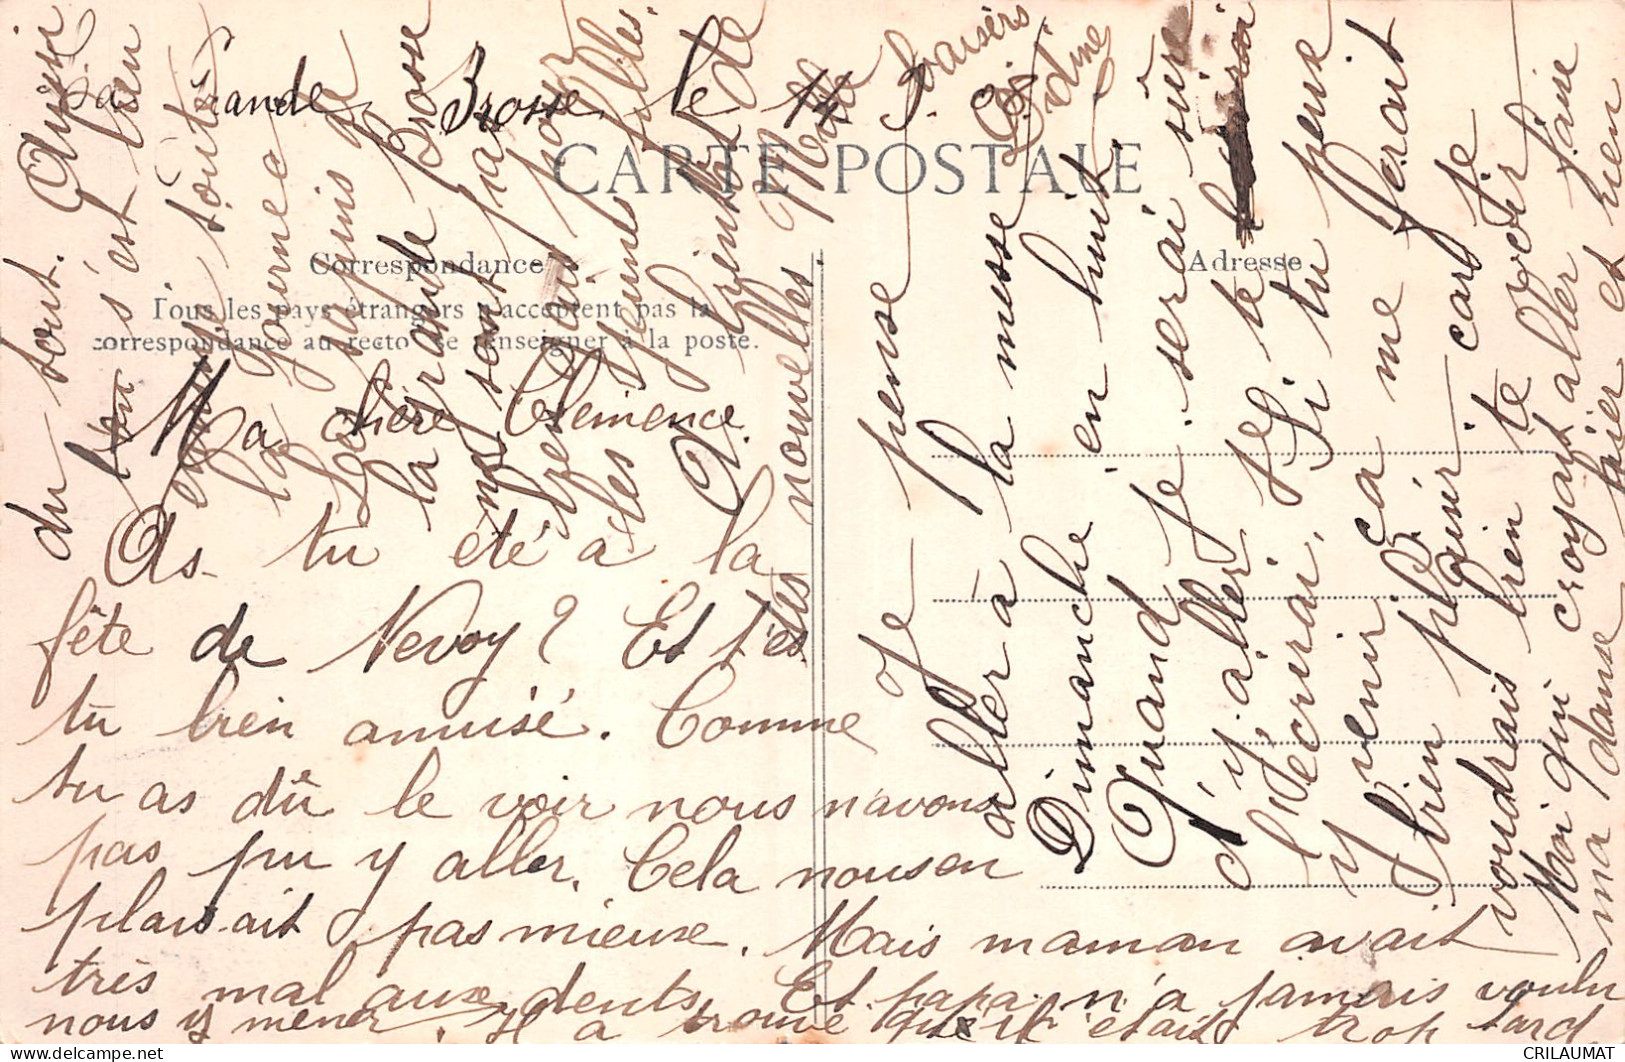 La Grande Brosse le 14 9.
CARTE POSTALE
Correspondance
Adresse
Tous les pays étrangers n'acceptent pas la
correspondance au recto se renseigner à la poste.
Ma chère Clémence.
As tu été à la
fête de Nevoy? Et t'es
tu bien amusé. Comme
tu as dû le voir nous n'avons
pas pu y aller. Cela nous en
plaisait pas mieux. Mais maman avait
très mal aux dents. Et papa n'a jamais voulu
nous y mener. Il a trouvé qu'il était trop tard
Je pense
aller à la messe
Dimanche en huit
Quand je serai sûre
d'y aller je te
l'écrirai. Si tu peux
y venir ça me ferait
bien plaisir car je
voudrais bien te voir
Moi qui croyait aller faire
ma danse hier et rien
du tout. Aussi
l'on s'est bien
toute
la journée
la grande Brosse
les jeunes filles.
des nouvelles
baisers